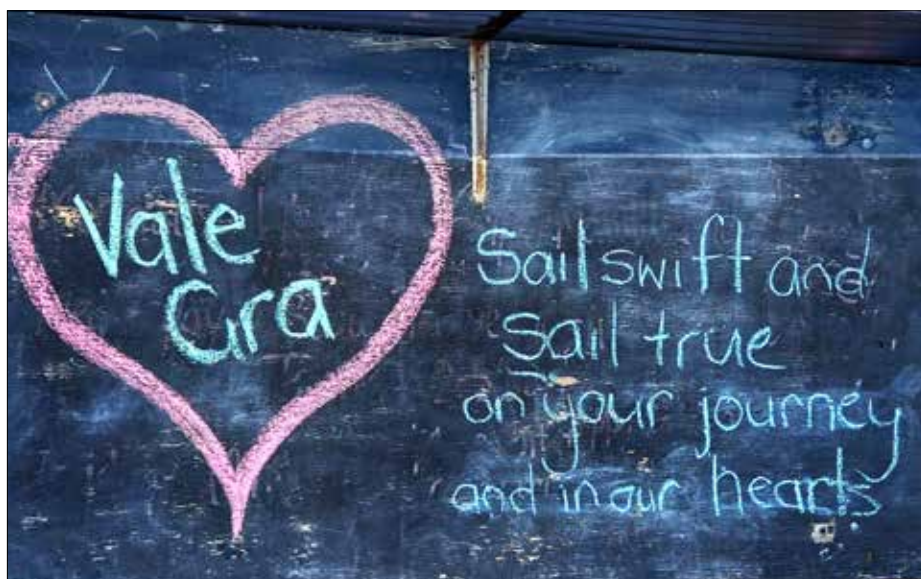 Vale
Gra
Sail swift and
Sail true
on your journey
and in our hearts